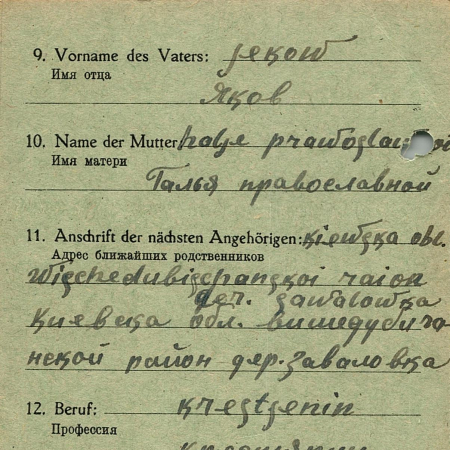 9. Vorname des Vaters: Jekow
Имя отца
Яков
10. Name der Mutter halje prawoslawnoi
Имя матери
Галья православной
11. Anschrift der nächsten Angehörigen: kiewska obl.
Адрес ближайших родственников
raion
der. sawalowka
Киевска обл. вишедубича
нской район дер. Заваловка
12. Beruf: krestjenin
Профессия